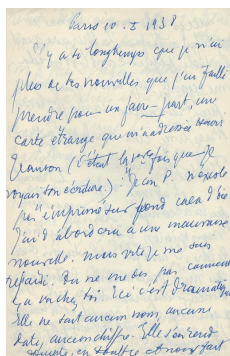 Paris 10. I 1938
Il y a si longtemps que je n'ai
plus de tes nouvelles que j'ai failli
prendre pour un faire-part, une
carte étrange que m'a adressée
(c'était la 1re fois que je
voyais son écriture). "Jean P. n'existe
pas" imprimé sur fond
J'ai d'abord cru à une mauvaise
nouvelle. mais vite je me suis
. On ne me dit pas comment
ça va chez toi. Ici c'est dramatique
Elle ne sait aucun nom, aucune
date, aucun chiffre. Elle s'en rend
compte, en souffre